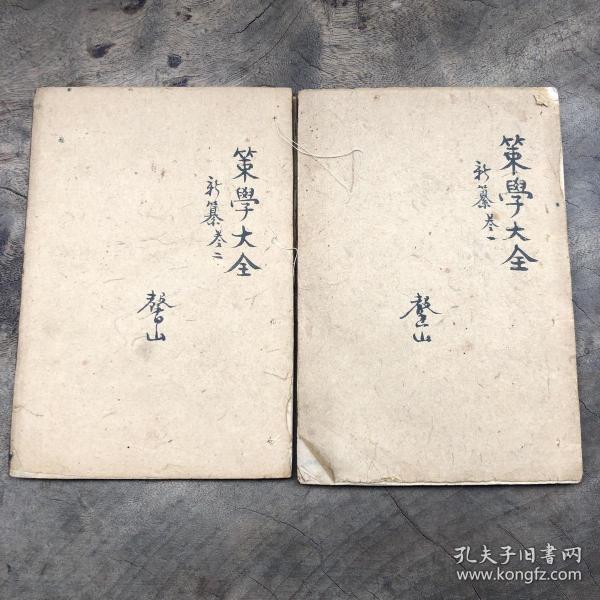 策學大全
新纂卷一
馨山
策學大全
新纂卷二
馨山
孔夫子旧书网
www.kongfz.com